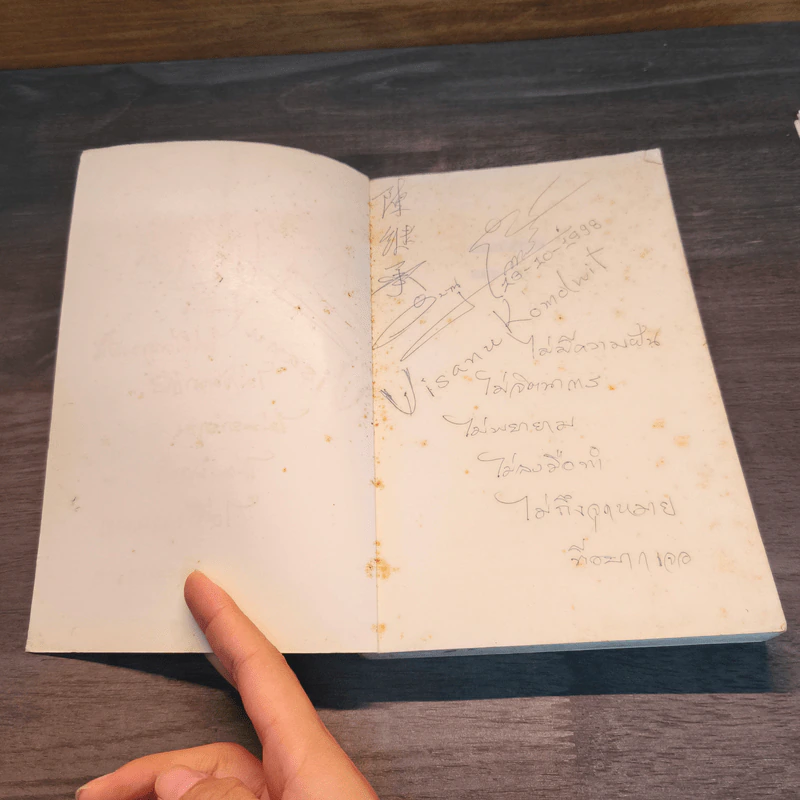 陳
继
承
20-10-1998
Visanu Komdwit
ไม่มีความฝัน
ไม่จินตนาการ
ไม่พยายาม
ไม่ลงมือทำ
ไม่ถึงจุดหมาย
ที่อยากเจอ